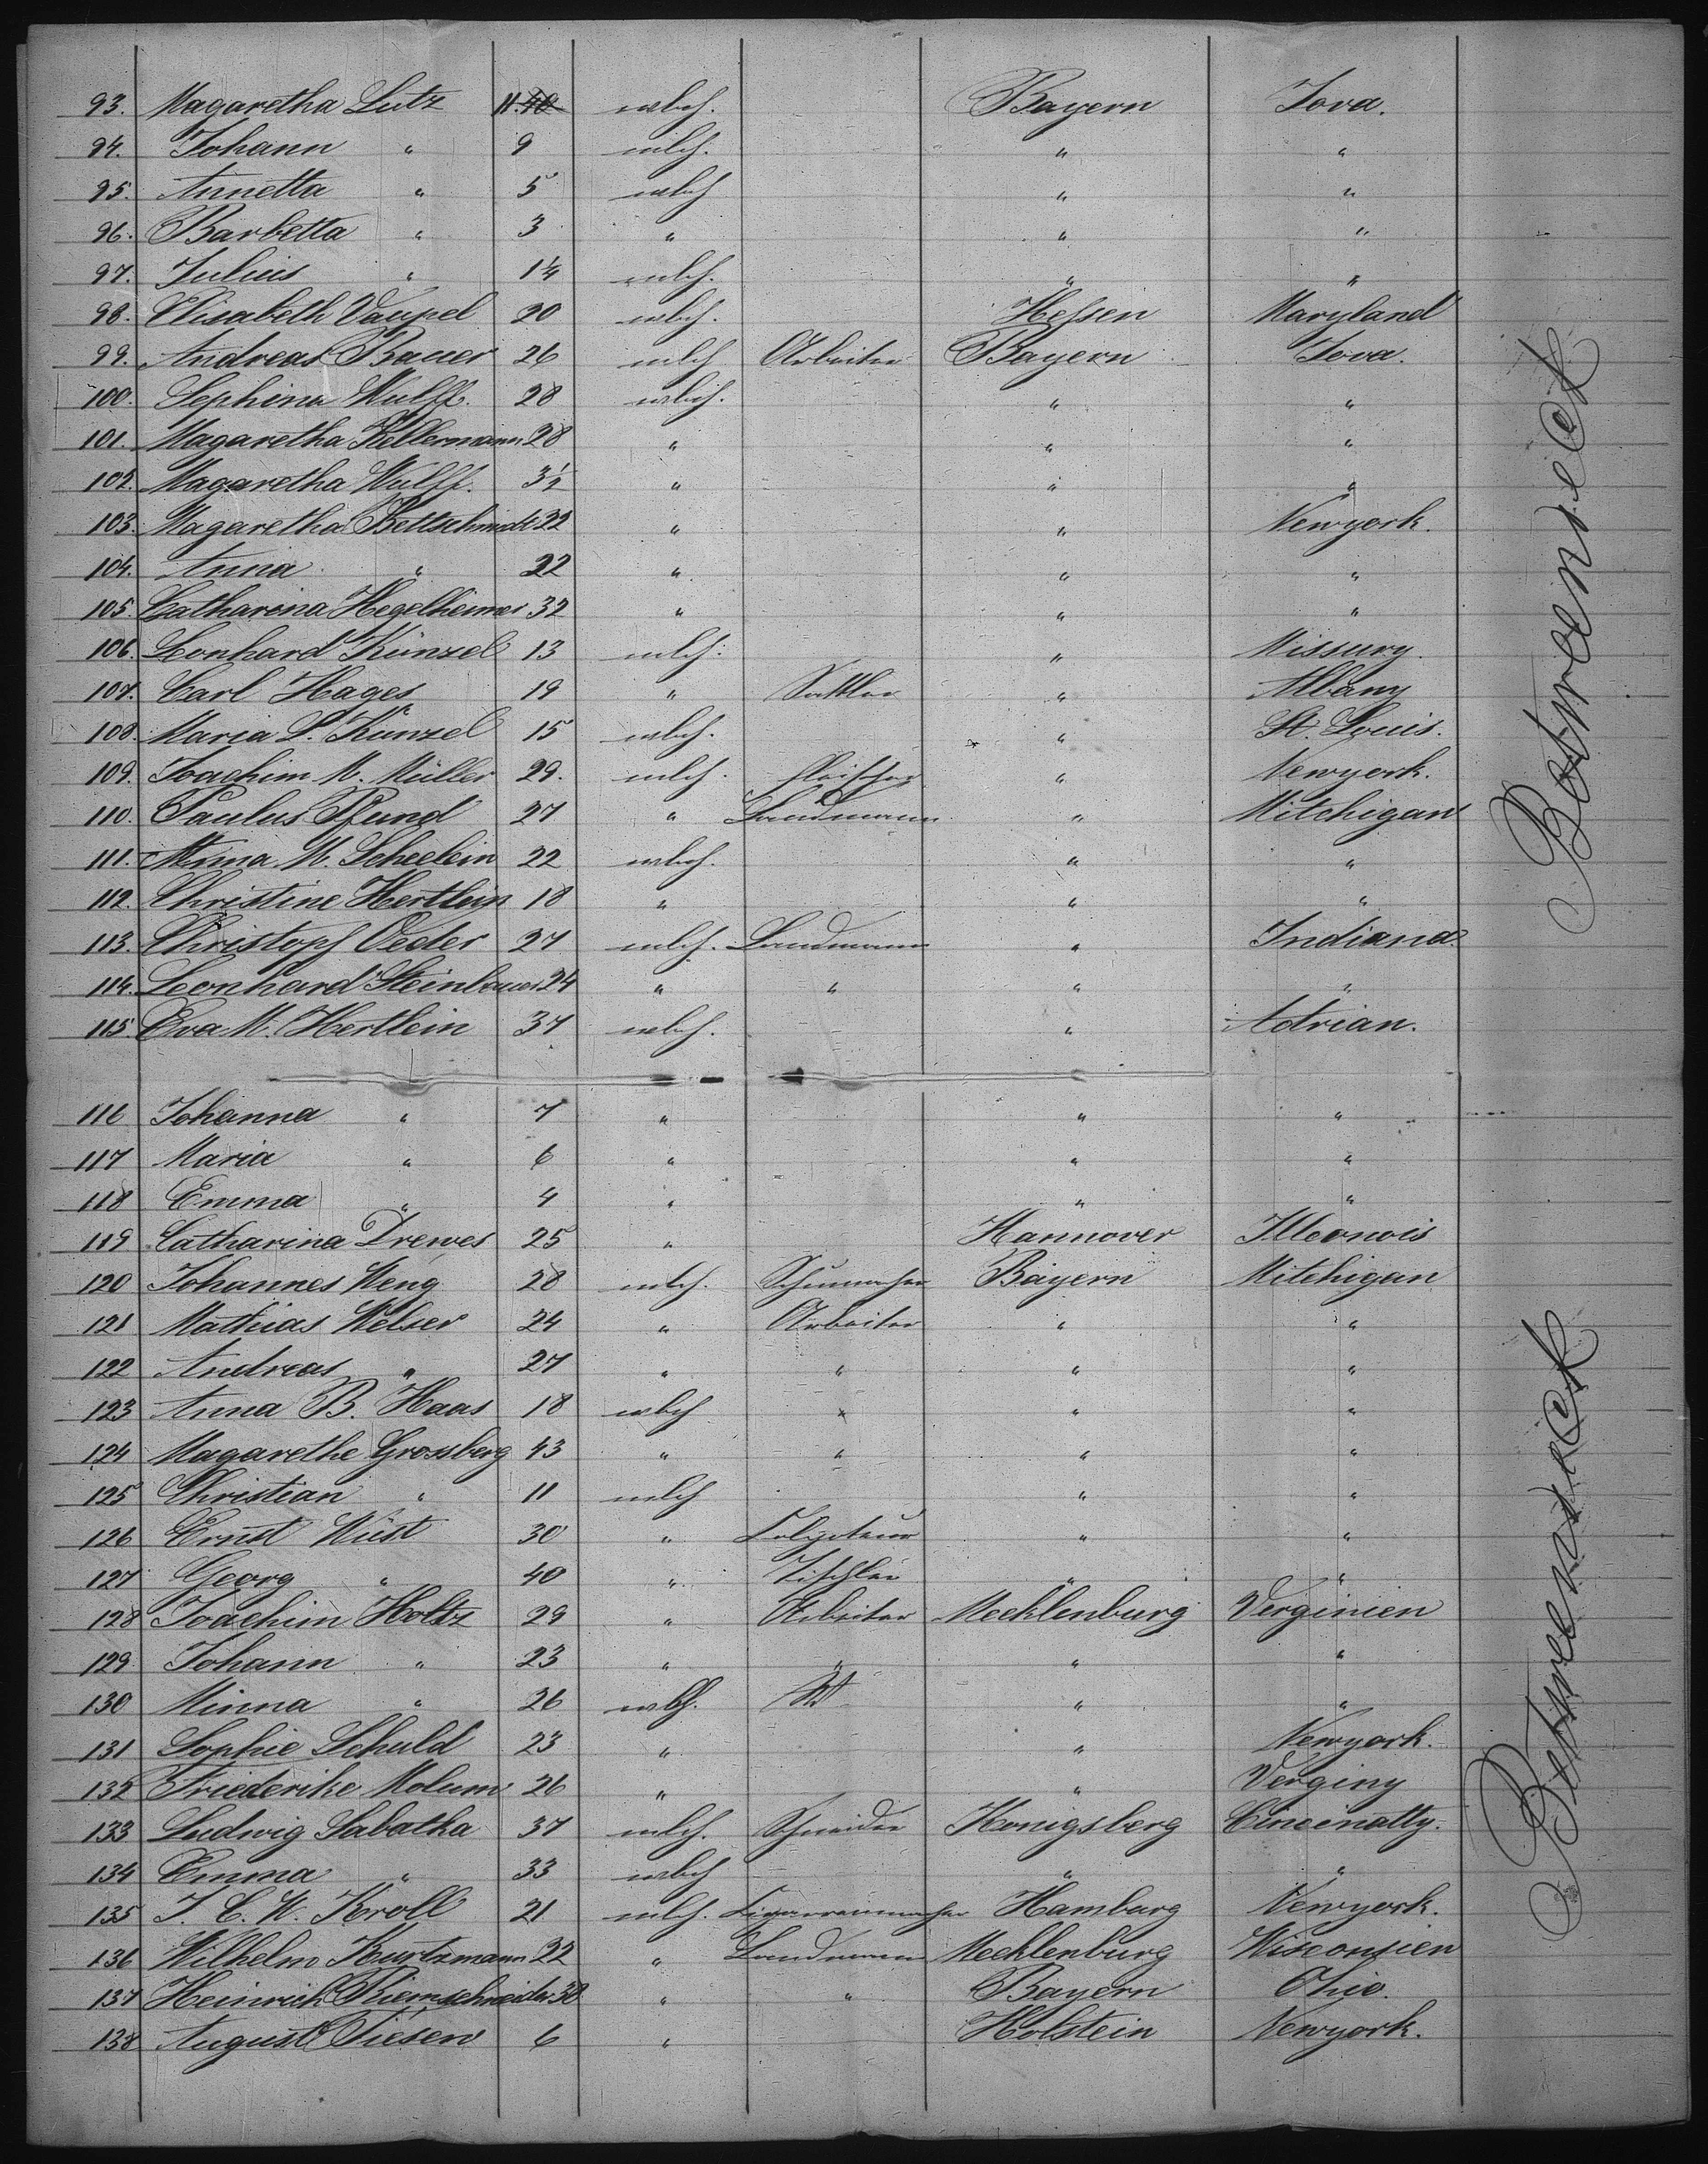 93. Magaretha Lutz 11. 40 wbch. Bayern Iova.
94. Johann " 9 mlch. " "
95. Annetta " 5 wbch " "
96. Barbetta " 3 " " "
97. Julius " 1¼ mlch. " "
98. Elisabeth Vaupel 20 wbch. Hessen Maryland
99. Andreas Bauer 26 mlch Arbeiter Bayern Iova.
100. Sephina Wulff. 28 wblch. " "
101. Magaretha Kellermann 28 " " "
102. Magaretha Wulff. 3½ " " "
103. Magaretha Kettschmidt 22 " " Newyork.
104. Anna " 22 " " "
105. Catharina Hegelheimer 32 " " "
106. Leonhard Künzel 13 mlch. " Missury.
107. Carl Hages 19 " Sattler " Albany
108. Maria S. Künzel 15 wbch. " St. Louis.
109. Joachim M. Müller 29. mlch. Fleischer " Newyork.
110. Paulus Pfund 27 " Landmann " Mitchigan
111. Anna M. Scheelein 22 wbch. " "
112. Christine Hertlein 18 " " "
113. Christoph Oeder 27 mlch. Landmann " Indiana.
114. Leonhard Steinbauer 24 " " " "
115. Eva M. Hertlein 37 wbch. " Adrian.
116 Johanna " 7 " " "
117 Maria " 6 " " "
118 Emma " 4 " " "
119 Catharina Drewes 25 " Hannover Illeonois
120 Johannes Weng 28 mlch. Schumacher Bayern Mitchigan
121 Mathias Welser 24 " Arbeiter " "
122 Andreas " 27 " " " "
123 Anna B. Haas 18 wbch " " "
124 Magarethe Grossberg 43 " " " "
125 Christian " 11 mlch " "
126 Ernst Wüst 30 " " "
127 Georg " 40 " Tischler " "
128 Joachim Holtz 29 " Arbeiter Mecklenburg Verginien
129 Johann " 23 " " " "
130 Minna " 26 wbch. " "
131 Sophie Schuld 23 " " Newyork.
132 Friederike Molum 26 " " Verginy
133 Ludwig Sabatka 37 mlch. Schneider Konigsberg Cincinatty.
134 Emma " 33 wbch " "
135 J. C. W. Kroll 21 mlch. Cigarrenmacher Hamburg Newyork.
136 Wilhelm Kurtzmann 22 " Landmann Mecklenburg Wisconsien
137 Heinrich Riemschneider 38 " " Bayern Ohio.
138 August Tiesen 6 " Holstein Newyork.
Betweendeck
Betweendeck